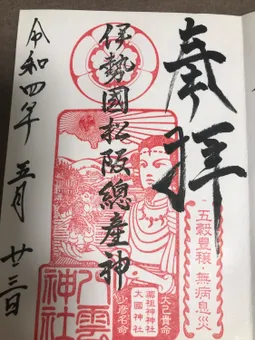 奉拝
五穀豊穣・無病息災
伊勢國松阪總産神
大己貴命
薬祖神神社
大國神社
少彦名命
八雲神社
令和四年 五月 廿三日